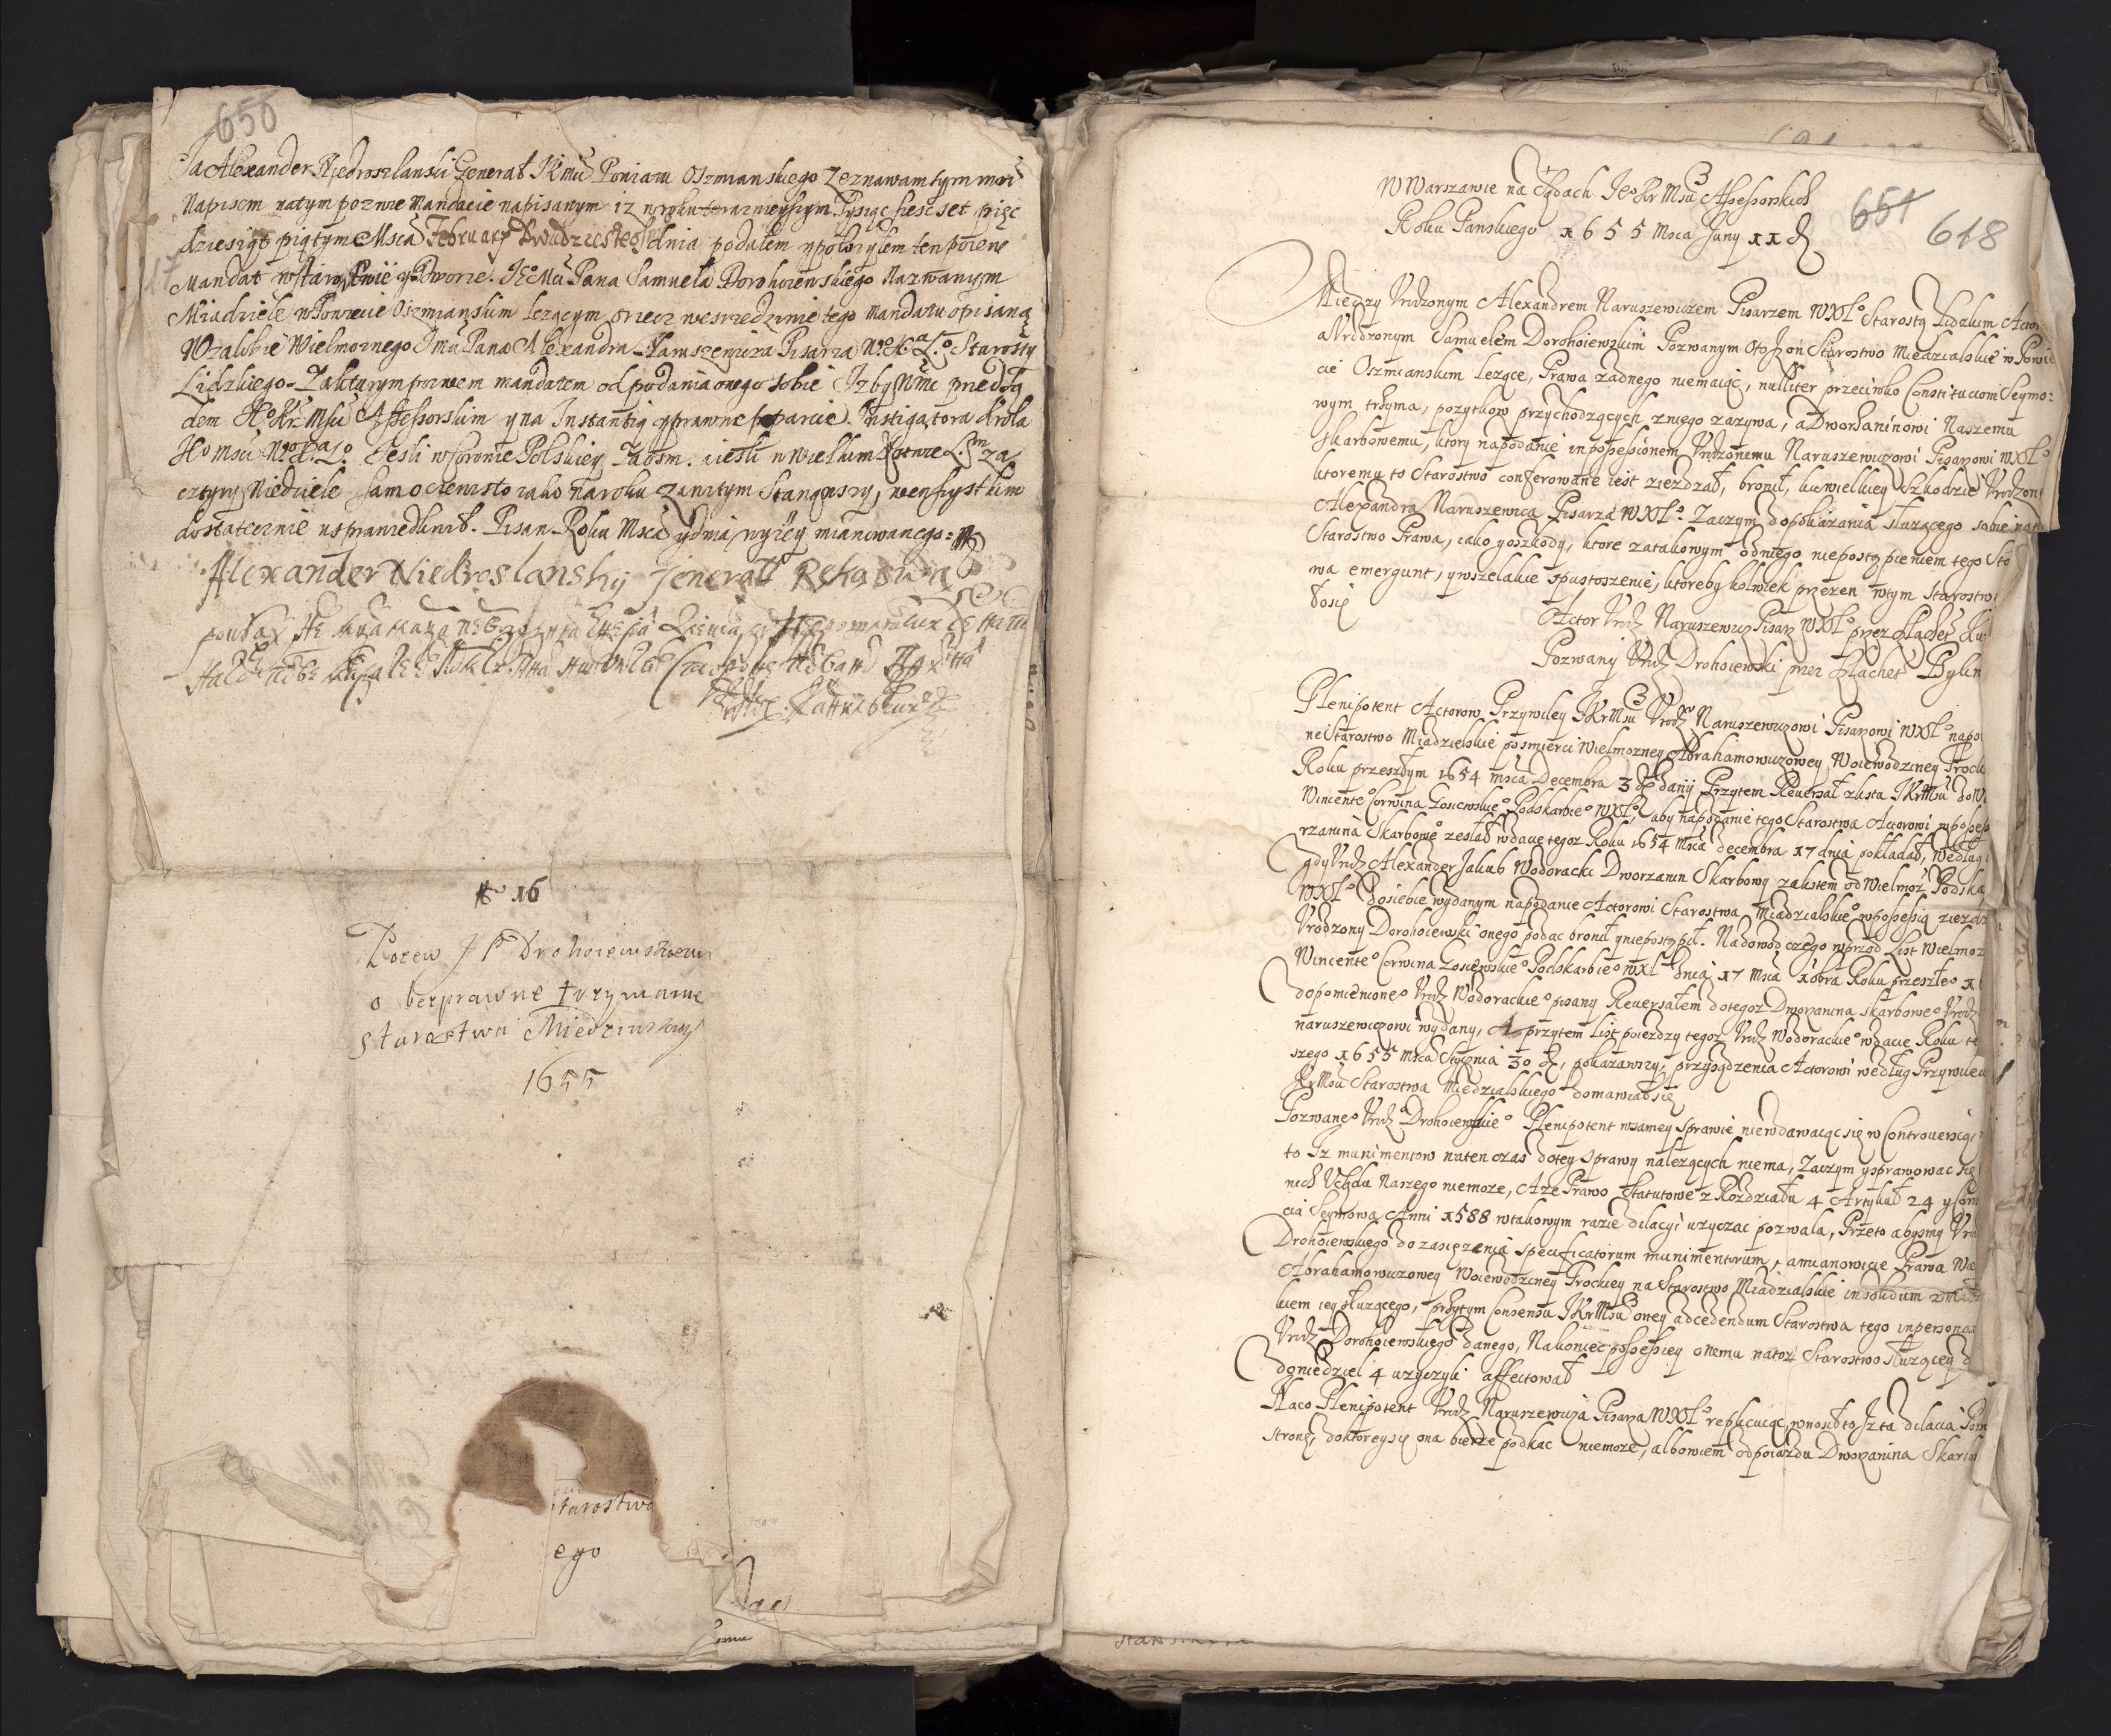 650
Ja Alexander Niedroszlanski Generał JKmci Powiatu Oszmianskiego zeznawam tym moi
Napisem na tym pozwie Mandacie napisanym iz w roku teraznieyszym Tysiąc szescset pięc
dziesiąt piątym Msca February dwudziestego dnia podałem y połozyłem ten pozew
Mandat w Starostwie y Dworze Je Mci Pana Samuela Dorohoiewskiego Nazwanym
Miadziele w Powiecie Oszmianskim lezącym o rzecz we srzedzinie tego Mandatu opisaną
W zalobie Wielmoznego Jmci Pana Alexandra Naruszewicza Pisarza W° X° L° Starosty
Lidzkiego. Za ktorym pozwem mandatem od podania onego sobie Izby Nmc przed Są
dem J° Kr Msci Assessorskim y na Instantią y prawne poparcie Instigatora Króla
J° Msci W° X° L° Jesli w Coronie Polskiey Za osm. a iesli w Wielkim Xstwie L. za
cztyry Niedziele samo oczewisto iako na roku zawitym Stanąwszy, we wszystkim
dostatecznie usprawiedliwił. Pisan Roku Msca y dnia wyzey mianowanego
Alexander Niedroslanskij Jenerał Ręką swą
16
Pozew J P Drohoiewskiem
o bezprawne trzymanie
starostwa Miedziulskyˡ
1655
starostwo
ego
W Warszawie na Sądach Je° Kr Msci Assessorskich
Roku Panskiego 1655 Msca Juny 11 d
651
618
Między Urodzonym Alexandrem Naruszewiczem Pisarzem WXL° Starostą Lidzkim Actor
a Urodzonym Samuelem Dorohoiewskim Pozwanym Oto Iz on Starostwo Miedzialskie w Powie
cie Oszmianskim lezące, Prawa zadnego niemaiąc, nulliter przeciwko Constituciom Seymo:
wym trzyma, pozytkow przychodzących z niego zazywa, a Dworzaninowi Naszemu
Skarbowemu, ktory na podanie in possessionem Urodzonemu Naruszewiczowi Pisarzowi WXL°
ktoremu to Starostwo conferowane iest ziezdzał, bronił, ku wielkiey Szkodzie Urodzon
Alexandra Naruszewicza Pisarza WXL°. Zaczym do pokazania słuzącego sobie na t
Starostwo Prawa, iako y o szkody, ktore za takowym od niego niepostąpieniem tego Sto
wa emergunt, y wszelakie spustoszenie, ktoreby kolwiek przezen w tym Starostwi
stosię
Actor Urodz Naruszewicz Pisarz WXL° przez szlachet Ku
Pozwany Urodz Drohoiewski przez szlachet Bylin
Plenipotent Actorow Przywiley JKrMsci Urodz Naruszewiczowi Pisarzowi WXL° na po
ne Starostwo Miadzielskie po smierci Wielmozney Abrahamowiczowey Woiewodziney Trock
Roku przeszłym 1654 Msca Decembra 3 d dany, Przytem Reversał z listu JKrMsci do W
Wincente° Corwina Gosiewskie° Podskarbie° WXL°, aby na podanie tego Starostwa Actorowi w posses
rzanina Skarbowe° zesłał w dacie tegoz Roku 1654 Msca decembra 17 dnia pokładał, Według
gdy Urodz Alexander Jakub Wodoracki Dworzanin Skarbowy za listem od Wielmoz Podska
WXL° do siebie wydanym na podanie Actorowi Starostwa Miadzialskie° w possessią ziezdz
Urodzony Dorohoiewski onego podac bronił y niepostąpił. Na dowod czego wprzod List Wielmoz
Wincente° Corwina Gosiewskie° Podskarbie° WXL° dnia 17 Msca Xbra Roku przeszłe° 1
do pomienione° Urodz Wodorackie° pisany Reversałem do tegoz Dworzanina Skarbowe° Urodz
naruszewiczowi wydany, A przytem List poiezdzy tegoz Urodz Wodorackie° w dacie Roku te
szego 1655 Msca Stycznia 30 d, pokazawszy, przysądzenia Actorowi według Przywileiu
KrMsci Starostwa Miedzialskiego domawiał się
Pozwane° Urodz Drohoiewskie° Plenipotent w samey Sprawie niewdawaiąc się w Controversią
to Iz munimentow na ten czas do tey Sprawy nalezących niema, Zaczym y sprawowac się
nich Sądu Naszego niemoze, A ze Prawo Statutowe z Rozdziału 4 Artykuł 24 y Con
cia Seymowa Anni 1588 w takowym razie dilacyi uzyczac pozwala, Przeto abysmy Uro
Drohoiewskiego do zasięzenia specificatorum munimentorum, a mianowicie Prawa Wie
Abrahamowiczowey Woiewodziney Trockiey na Starostwo Miadzialskie in solidum z mał
kiem iey słuzącego, przytym Consensu JKrMsci oney ad cedendum Starostwa tego in personam
Urodz Dorohoiewskiego danego, Nakoniec possessiey onemu na toz Starostwo słuzącey d
do niedziel 4 uzyczyli affectował
Na co Plenipotent Urodz Naruszewicza Pisarza WXL° replicuiąc wnosił to Iz ta dilacia Pozw
stronę, do ktorey się ona bierze podkac niemoze, albowiem od poiazdu Dworzanina Skarbo